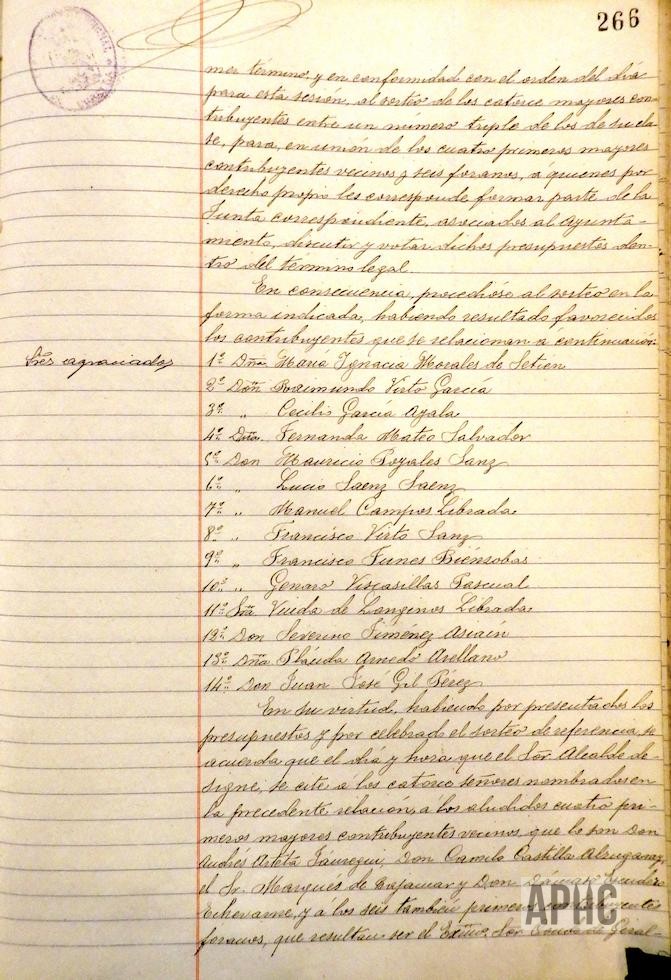 266
mer término, y en conformidad con el orden del día
para esta sesión, al sorteo de los catorce mayores con-
tribuyentes entre un número triple de los de su cla-
se, para, en unión de los cuatro primeros mayores
contribuyentes vecinos y seis foranos, á quienes por
derecho propio les corresponde formar parte de la
Junta correspondiente, asociados al Ayunta-
miento, discutir y votar dichos presupuestos den-
tro del término legal.
En consecuencia, procedióse al sorteo en la
forma indicada, habiendo resultado favorecidos
los contribuyentes que se relacionan á continuación:
Sres agraciados
1º Dña María Ignacia Morales de Setien
2º Don Raimundo Virto García
3º " Cecilio García Ayala
4º Dña. Fernanda Mateo Salvador
5º Don Mauricio Poyales Sanz
6º " Lucio Saenz Saenz
7º " Manuel Campos Librada
8º " Francisco Virto Sanz
9º " Francisco Funes Biénzobas
10º " Genaro Viscasillas Pascual
11º Sra Viuda de Longinos Librada
12º Don Severino Jiménez Asiain
13º Dña Plácida Arnedo Arellano
14º Don Juan José Gil Pérez
En su virtud, habiendo por presentados los
presupuestos y por celebrado el sorteo de referencia, se
acuerda que el día y hora que el Sor Alcalde de-
signe, se cite á los catorce señores nombrados en
la precedente relación, á los aludidos cuatro pri-
meros mayores contribuyentes vecinos, que lo son Don
Andrés Arteta Jáuregui, Don Camilo Castilla
el Sr. Marqués de Bajamar y Don Dámaso Escudero
Echevarne, y á los seis también primeros contribuyentes
foranos, que resultan ser el Exmo Sor Conde de
APHC